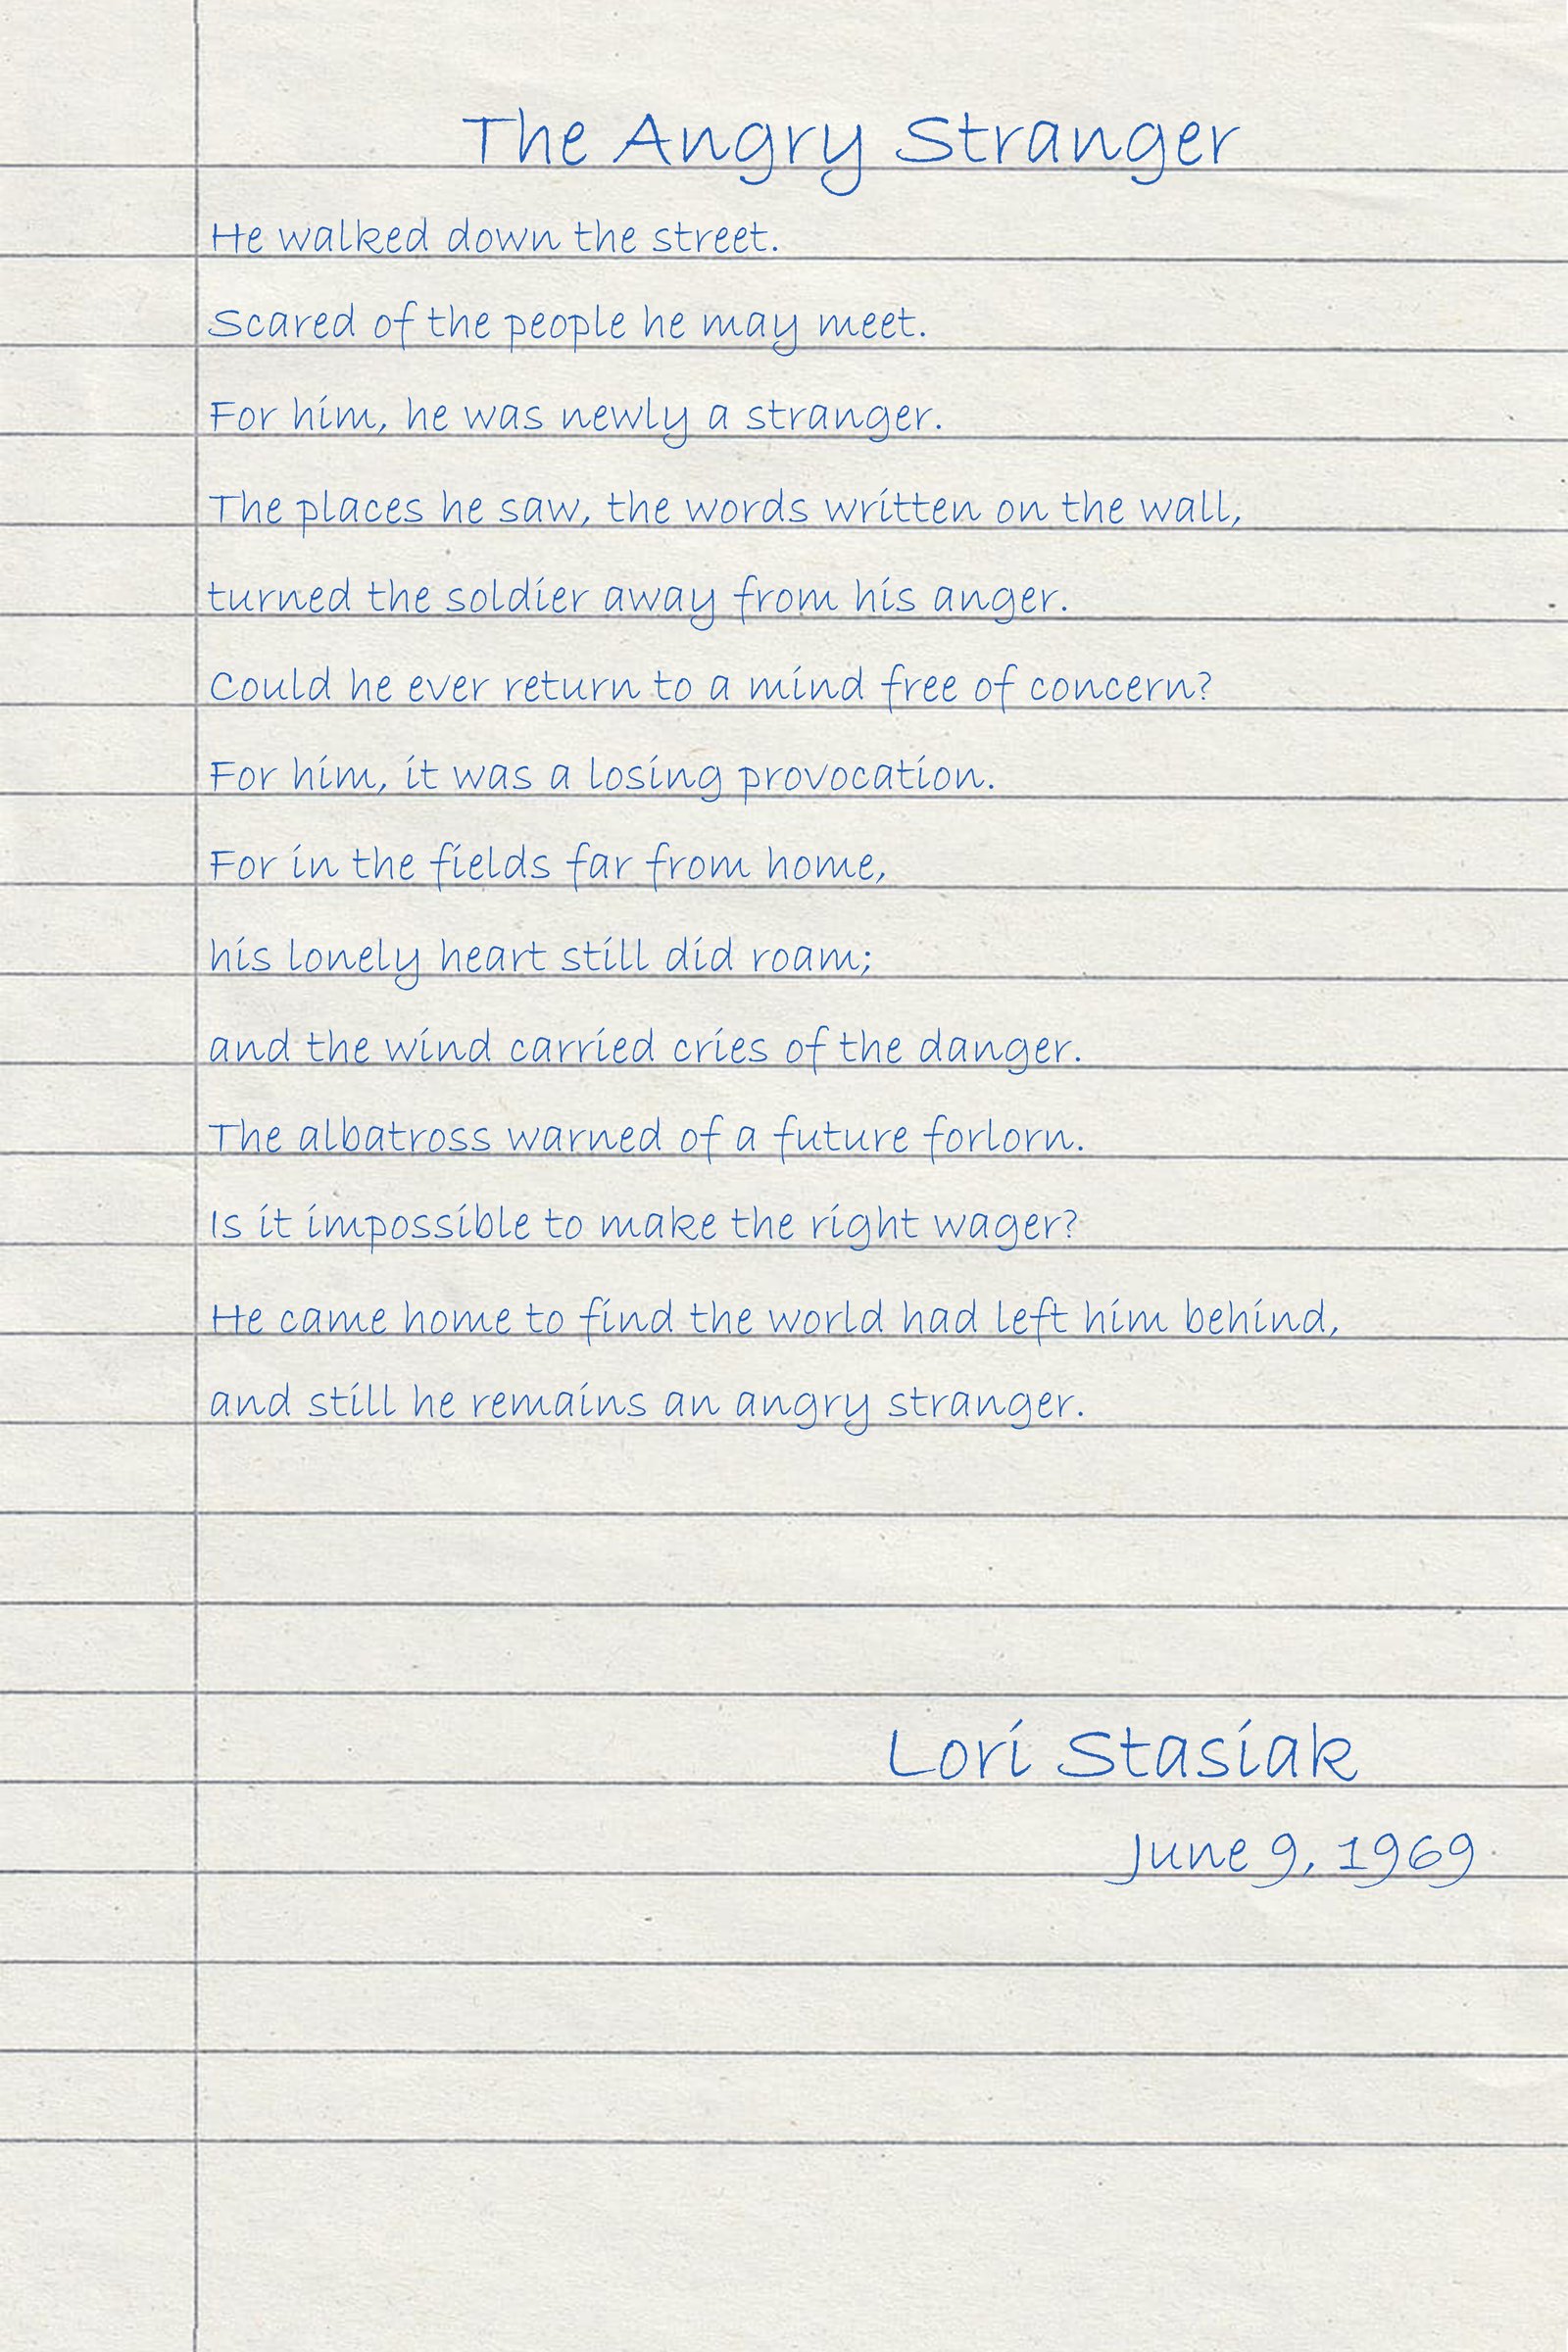 The Angry Stranger
He walked down the street.
Scared of the people he may meet.
For him, he was newly a stranger.
The places he saw, the words written on the wall,
turned the soldier away from his anger.
Could he ever return to a mind free of concern?
For him, it was a losing provocation.
For in the fields far from home,
his lonely heart still did roam;
and the wind carried cries of the danger.
The albatross warned of a future forlorn.
Is it impossible to make the right wager?
He came home to find the world had left him behind,
and still he remains an angry stranger.
Lori Stasiak
June 9, 1969